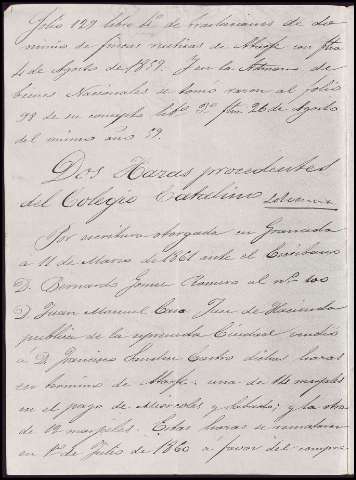 folio 129 libro 4º de traslaciones de do
minio de fincas rústicas de Atarfe con fha
4 de Agosto de 1859. Y en la Aduana de
bienes Nacionales se tomó razon al folio
98 de su concepto libº 3º fha 26 de Agosto
del mismo año 59.
Dos Hazas procedentes
del Colegio Catalino
Por escritura otorgada en Granada
a 11 de Marzo de 1861 ante el Escribano
D. Bernardo Gomez Romero al nº 100
D. Juan Manuel Juez de Hacienda
publica de la espresada Ciudad vendió
a D. Francisco Sanchez Castro dichas hazas
en termino de Atarfe: una de 14 marjales
en el pago de y la otra
de 12 marjales. Estas hazas se remataron
en 1º de Julio de 1860 a favor del compra